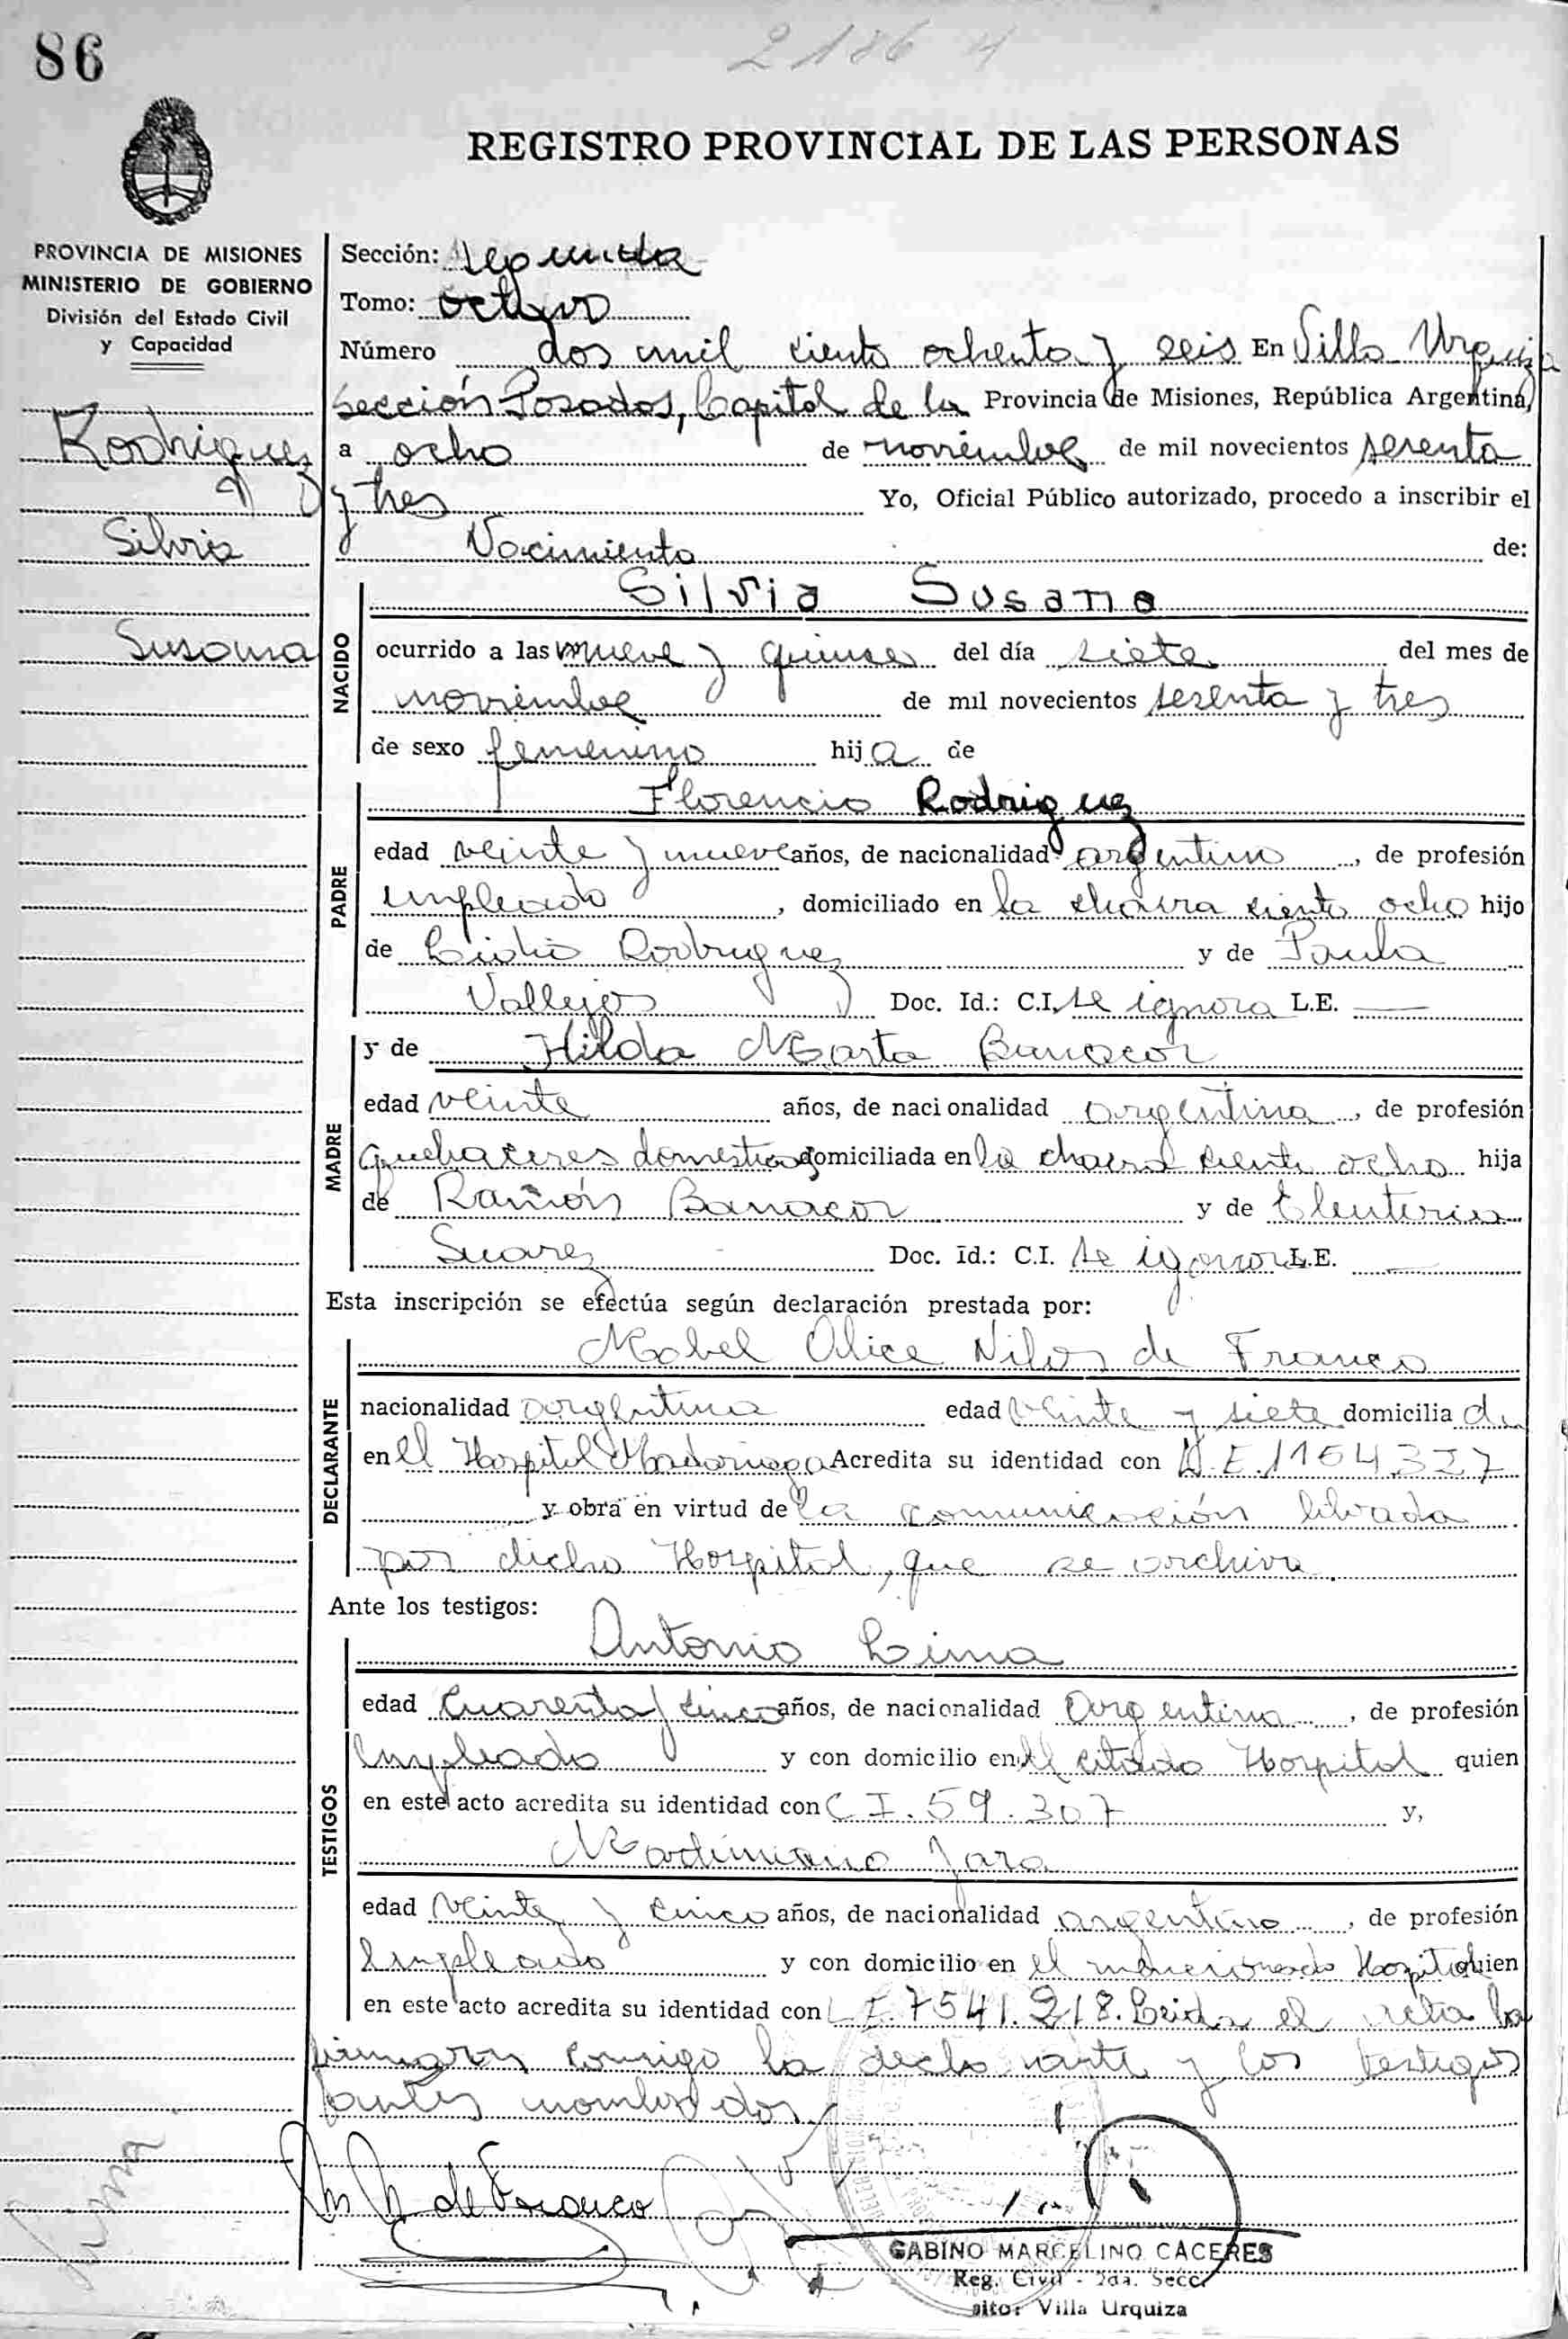 86
2186 4
REGISTRO PROVINCIAL DE LAS PERSONAS
PROVINCIA DE MISIONES
MINISTERIO DE GOBIERNO
División del Estado Civil
y Capacidad
Rodriguez
Silvia
Susana
Sección: segunda
Tomo: octavo
Número dos mil ciento ochenta y seis En Villa Urquiza
sección Posadas, Capital de la Provincia de Misiones, República Argentina,
a ocho de noviembre de mil novecientos sesenta
y tres Yo, Oficial Público autorizado, procedo a inscribir el
Nacimiento de:
NACIDO
Silvia Susana
ocurrido a las nueve y quince del día siete del mes de
noviembre de mil novecientos sesenta y tres
de sexo femenino hija de
PADRE
Florencio Rodriguez
edad veinte y nueve años, de nacionalidad argentino, de profesión
empleado, domiciliado en la chacra ciento ocho hijo
de Rodriguez y de Paula
Vallejos Doc. Id.: C.I. se ignora L.E. —
MADRE
y de Hilda Marta
edad veinte años, de nacionalidad argentina, de profesión
quehaceres domesticos domiciliada en la chacra ciento ocho hija
de Ramón y de Eleuteria
Suarez Doc. Id.: C.I. se ignora L.E. —
Esta inscripción se efectúa según declaración prestada por:
DECLARANTE
Mabel Alice de Franco
nacionalidad argentina edad veinte y siete domiciliada
en el Hospital Madariaga Acredita su identidad con
y obra en virtud de la comunicación librada
por dicho Hospital, que se archiva.
Ante los testigos:
TESTIGOS
Antonio Lima
edad cuarenta y cinco años, de nacionalidad argentina, de profesión
empleado y con domicilio en el citado Hospital quien
en este acto acredita su identidad con C I. 59.307 y,
Maximiano Jara
edad veinte y cinco años, de nacionalidad argentino, de profesión
empleado y con domicilio en el mencionado Hospital quien
en este acto acredita su identidad con 7541.218. Leida el acta la
firmaron conmigo la declarante y los testigos
antes nombrados.
Lima
de Franco
GABINO MARCELINO CACERES
Reg. Civil - 2da. Secc.
Villa Urquiza